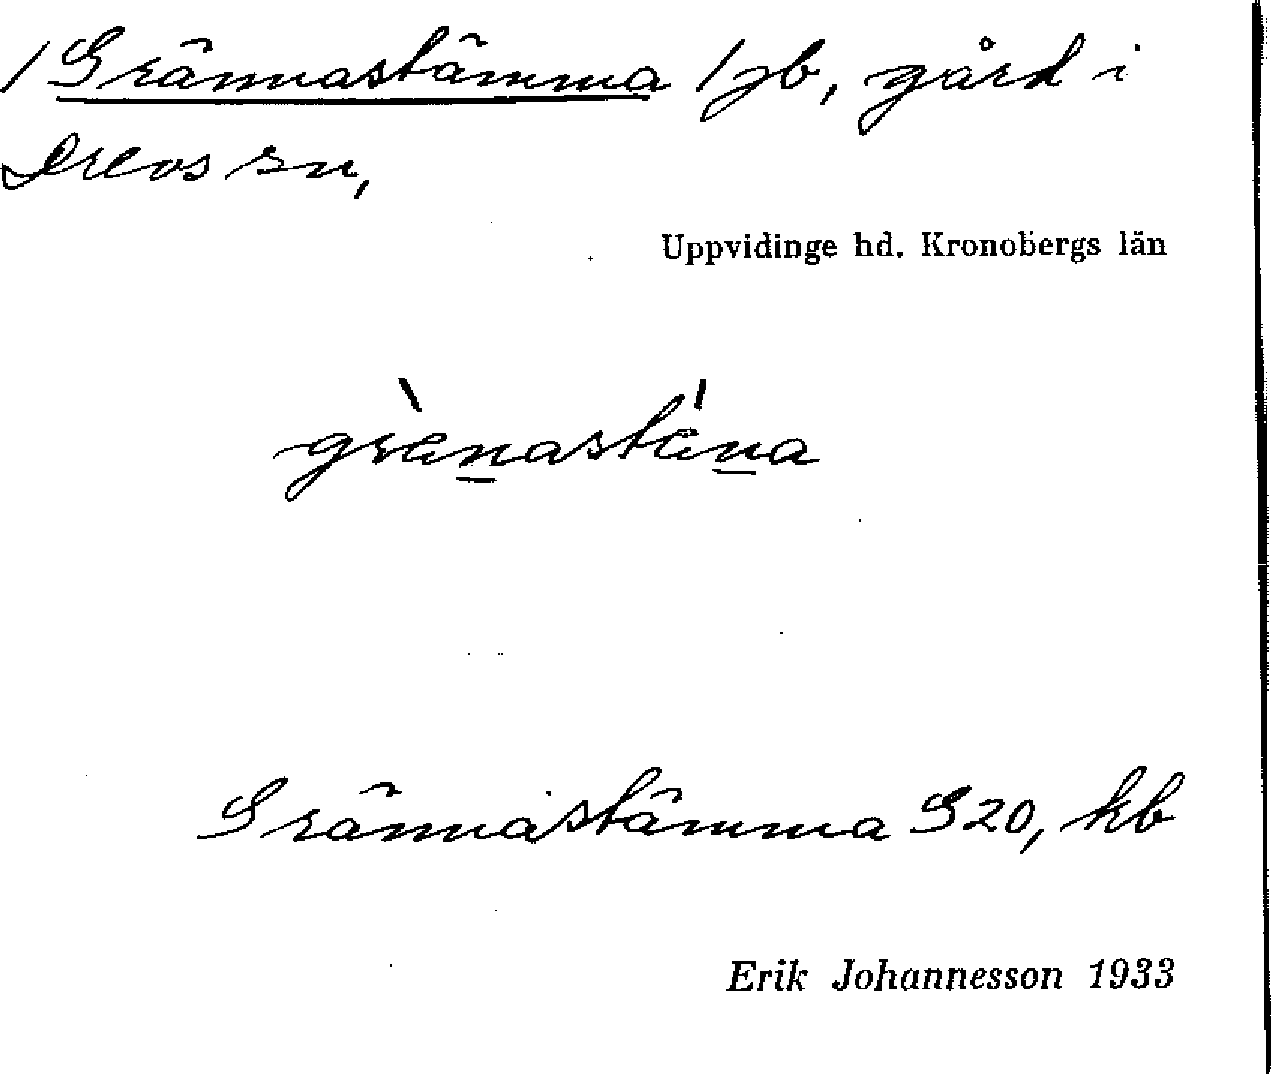 /Grännastämma/ jb, gård i
Drevs sn,
Uppvidinge hd. Kronobergs län
grènasténa
Grännastämma G20, kb
Erik Johannesson 1933